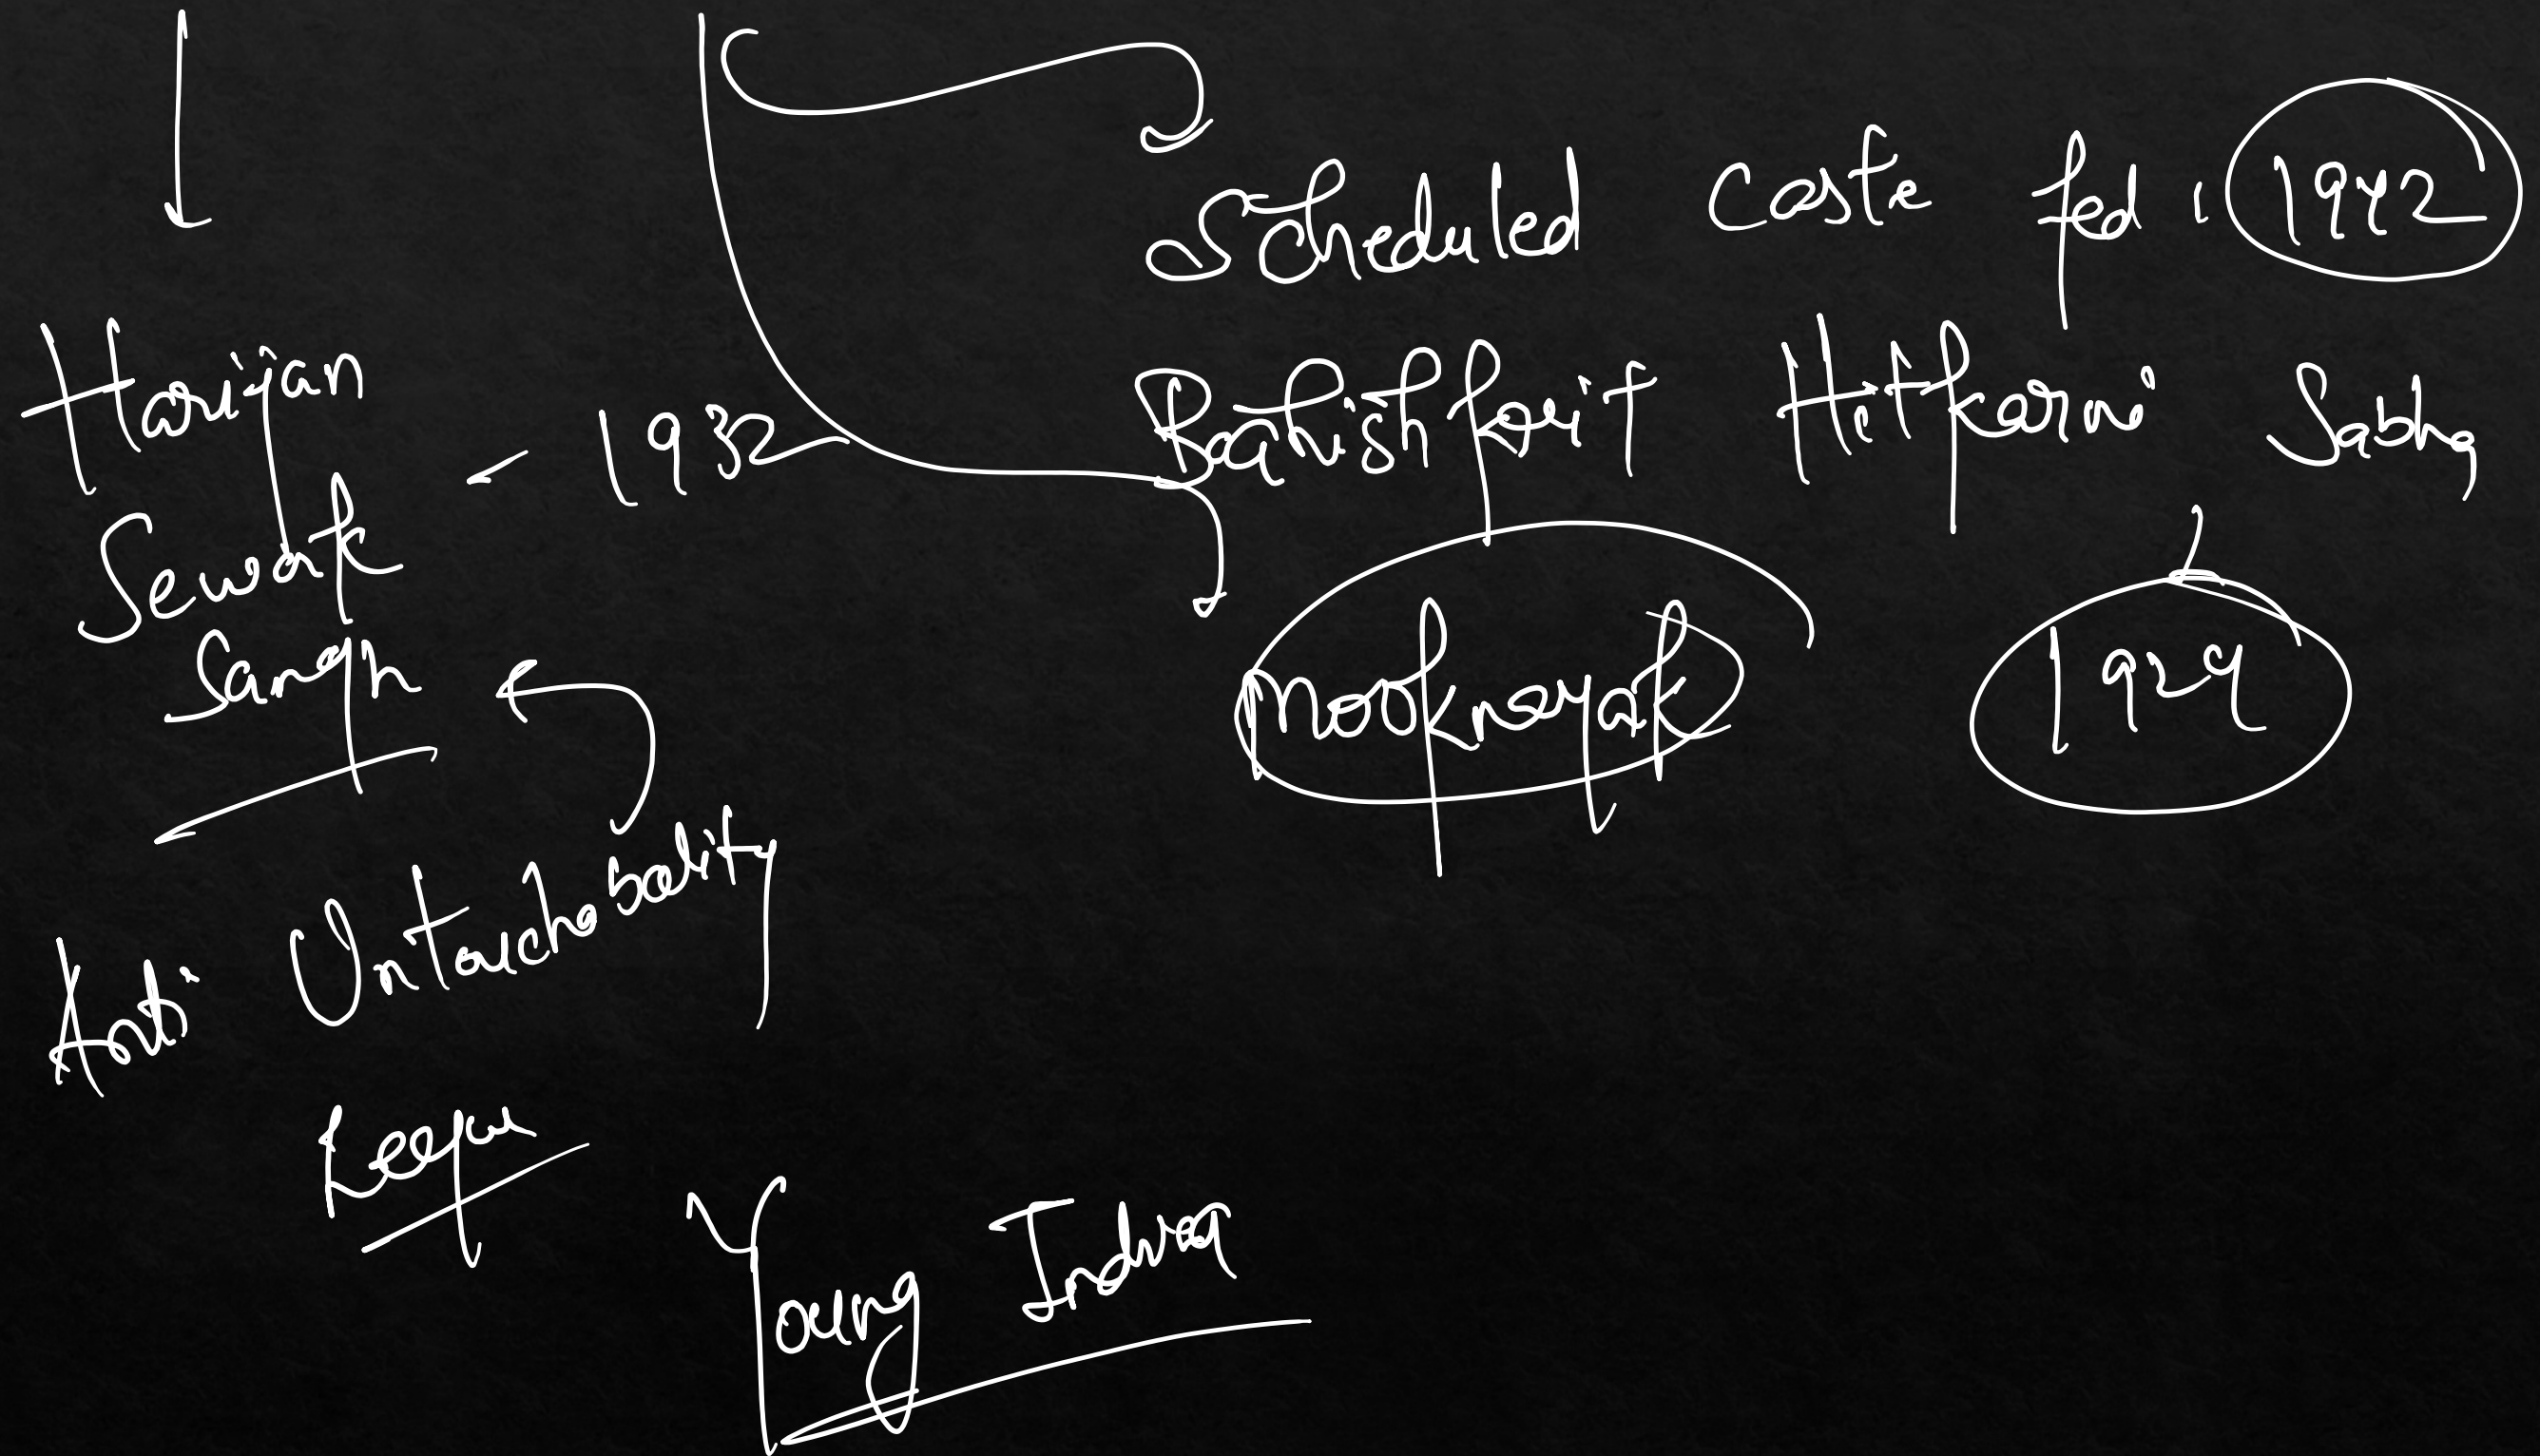 Scheduled Caste fed. 1942
Harijan
Sewak
Sangh
- 1932
Bahishkrit Hitkarni Sabha
Mooknayak
1924
Anti Untouchability
League
Young India